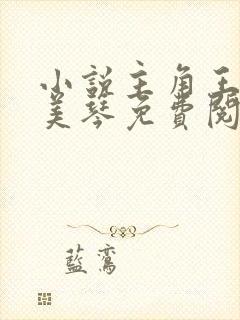 小說主角王
美琴免費閱
藍鸞